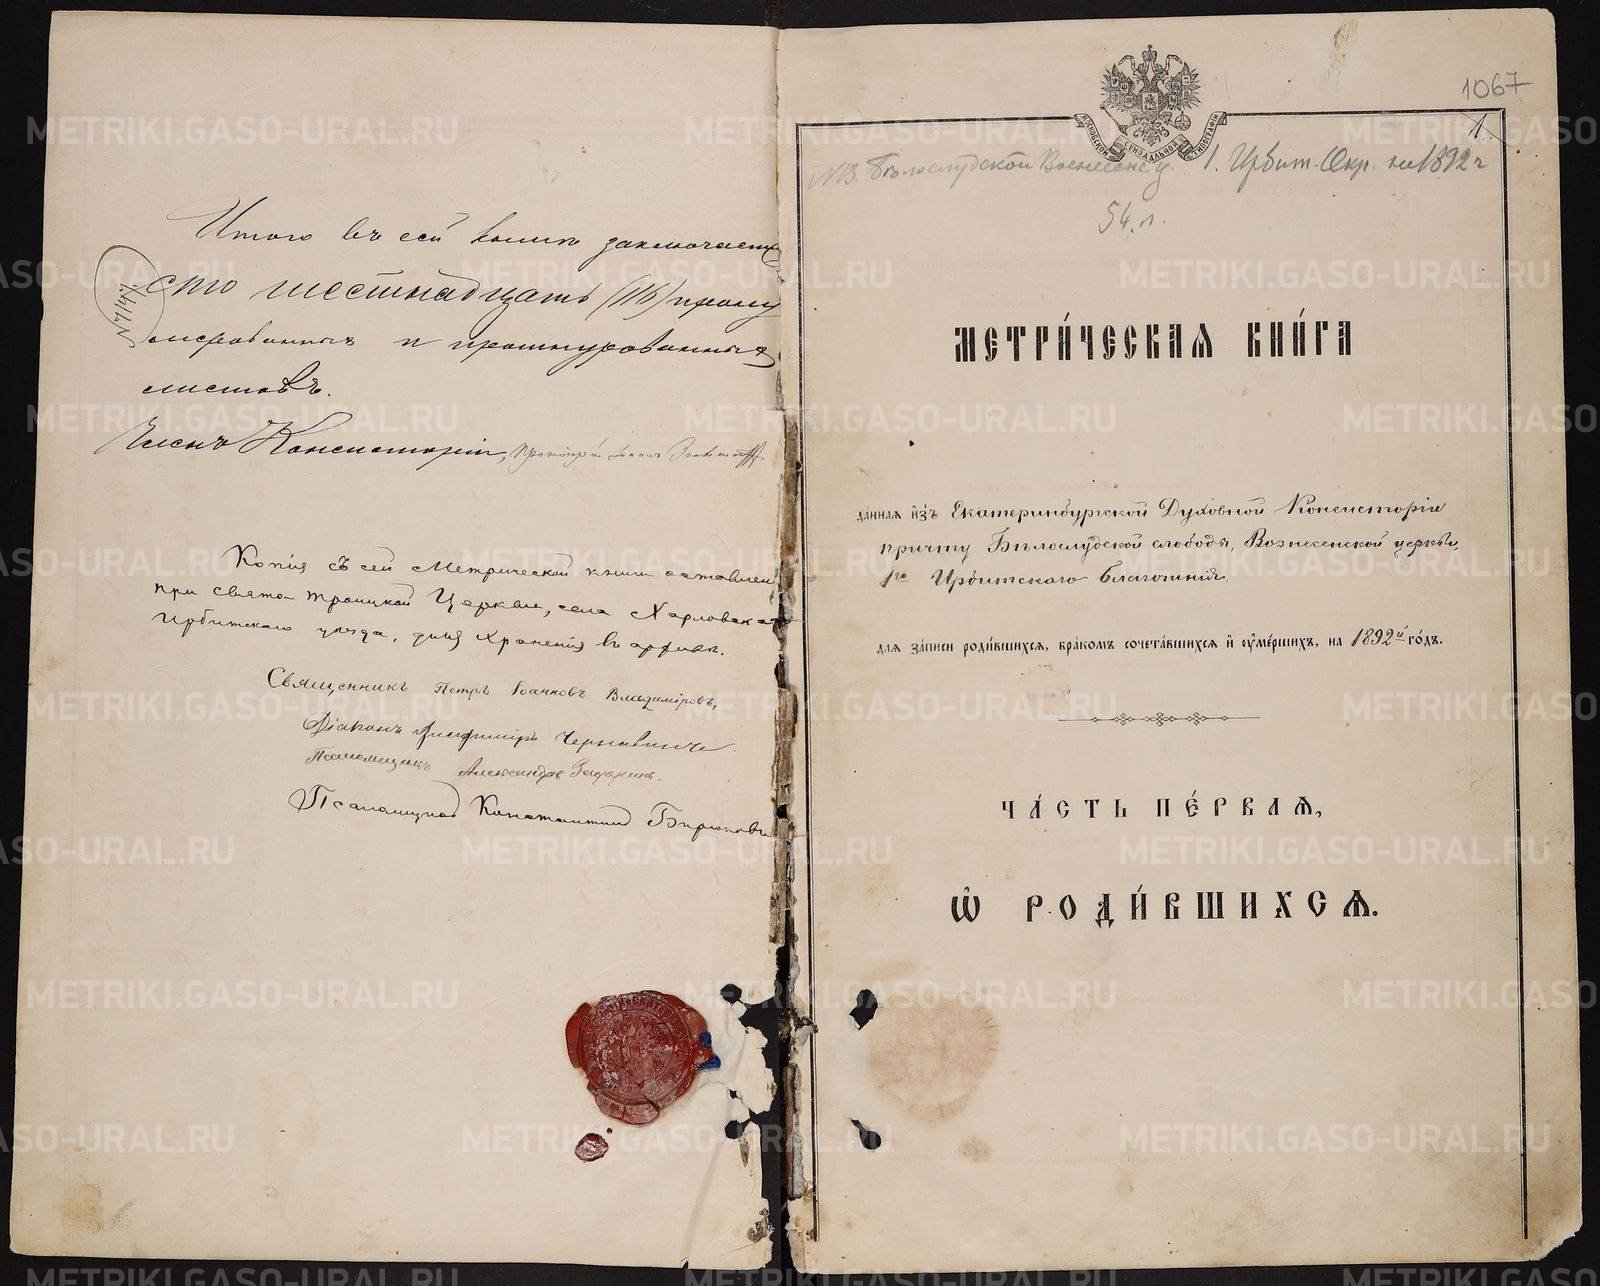 Итого въ сей книгѣ заключается
сто шестнадцать (116) прону
мерованныхъ и прошнурованныхъ
листовъ.
Членъ Консисторіи, Протоіерей Іоаннъ
Копія съ сей Метрической книги оставлен
при Свято-Троицкой Церкви, села Харловска
Ирбитскаго уѣзда, для храненія въ архивѣ.
Священникъ Петръ Іоанновъ Владиміровъ,
Діаконъ Чернавинъ
Псаломщикъ Александръ
Псаломщикъ Константинъ Бирюковъ
1067
1
МОСКОВСКОЙ СѴНОДАЛЬНОЙ ТИПОГРАФІИ
Бѣлослудской Вознесенс ц. 1. Ирбит. Окр. на 1892 г
54 л.
МЕТРИ́ЧЕСКАЯ КНИ́ГА
данная и҆зъ Екатеринбургской Духовной Консисторіи
причту Бѣлослудской слободы, Вознесенской церкви,
1го Ирбитскаго благочинія,
для за́писи роди́вшихся, бра́комъ сочета́вшихся и҆ оу҆ме́ршихъ, на 1892й го́дъ.
ЧА́СТЬ ПЕ́РВАЯ,
Ѡ҆ РОДИ́ВШИХСЯ.
METRIKI.GASO-URAL.RU